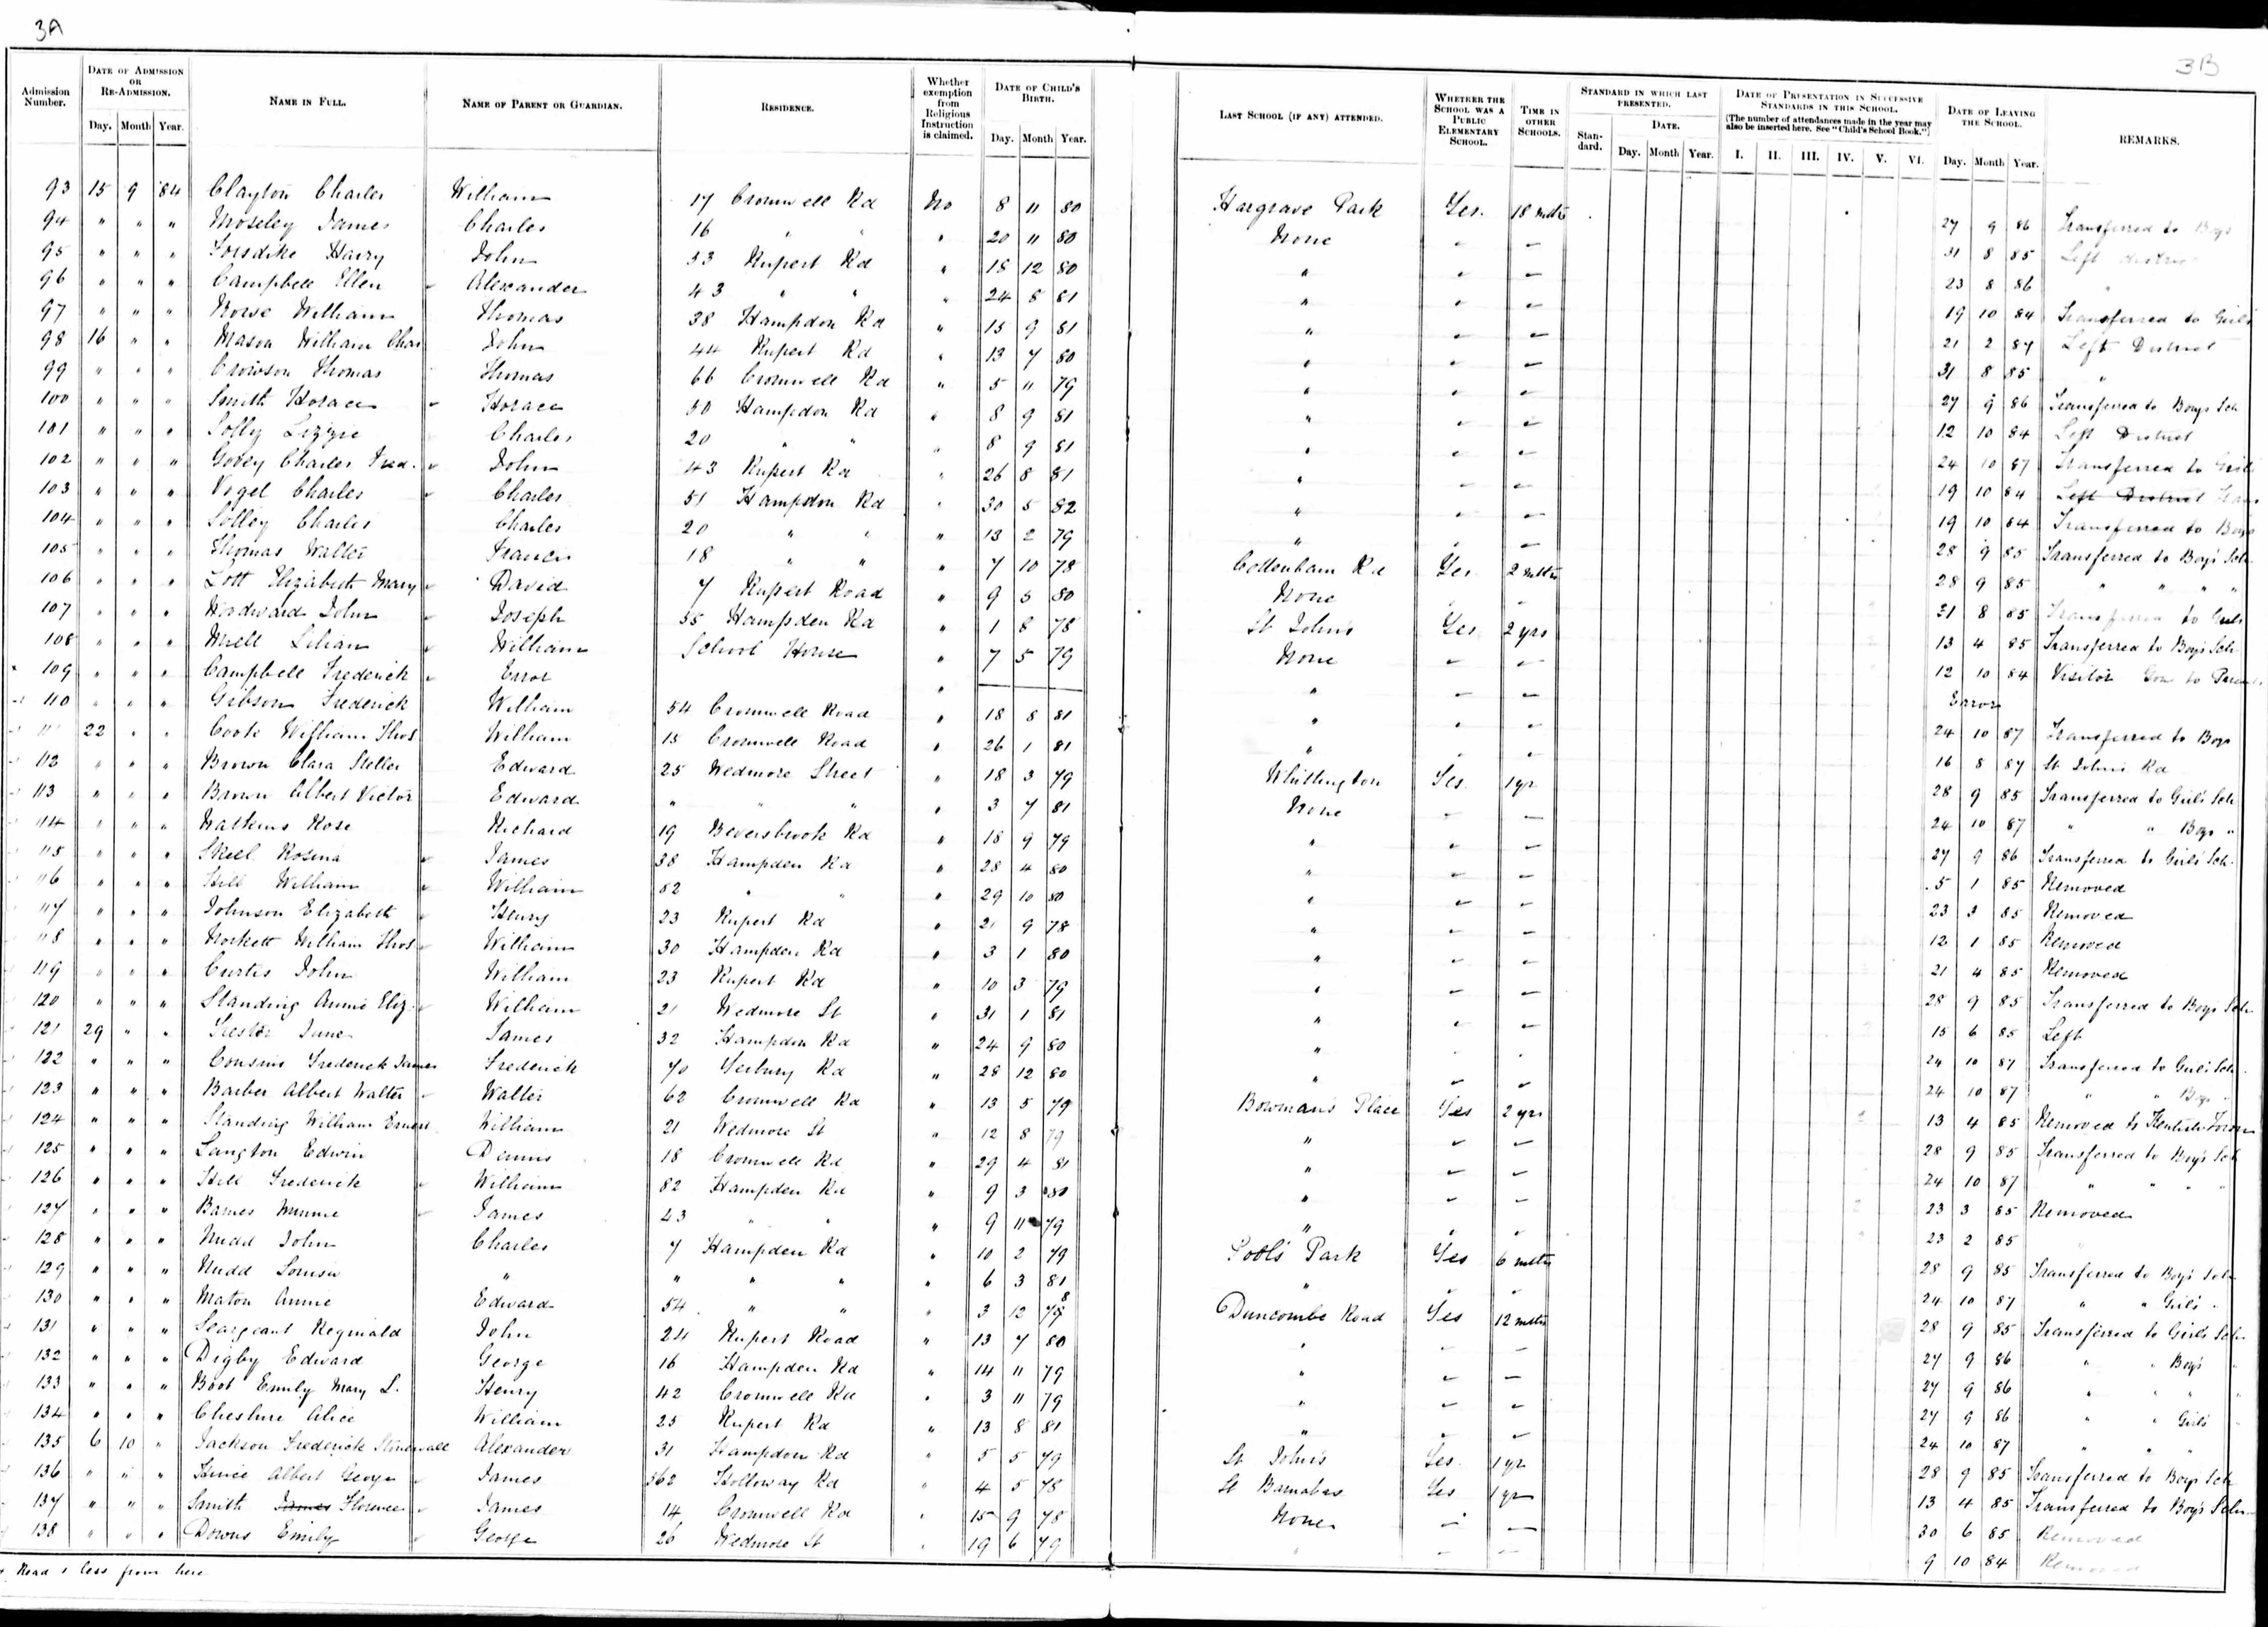 3A
3B
Admission Number.
DATE OF ADMISSION OR RE-ADMISSION.
Day. Month Year.
NAME IN FULL.
NAME OF PARENT OR GUARDIAN.
RESIDENCE.
Whether exemption from Religious Instruction is claimed.
DATE OF CHILD'S BIRTH.
Day. Month Year.
LAST SCHOOL (IF ANY) ATTENDED.
WHETHER THE SCHOOL WAS A PUBLIC ELEMENTARY SCHOOL.
TIME IN OTHER SCHOOLS.
STANDARD IN WHICH LAST PRESENTED.
Standard. DATE. Day. Month Year.
DATE OF PRESENTATION IN SUCCESSIVE STANDARDS IN THIS SCHOOL.
(The number of attendances made in the year may also be inserted here. See "Child's School Book.")
I. II. III. IV. V. VI.
DATE OF LEAVING THE SCHOOL.
Day. Month Year.
REMARKS.
93 15 9 84 Clayton Charles William 17 Cromwell Rd No 8 11 80 Hargrave Park Yes. 18 mths 27 9 86 Transferred to Boys
94 " " " Moseley James Charles 16 " " " 20 11 80 None 31 8 85 Left district
95 " " " Forsdike Harry John 53 Rupert Rd " 18 12 80 " 23 8 86 "
96 " " " Campbell Ellen Alexander 43 " " " 24 8 81 " 19 10 84 Transferred to Girls
97 " " " Rowe William Thomas 38 Hampdon Rd " 15 9 81 " 21 2 87 Left District
98 16 " " Mason William Chas John 44 Rupert Rd " 13 7 80 " 31 8 85 "
99 " " " Crowson Thomas Thomas 66 Cromwell Rd " 5 11 79 " 27 9 86 Transferred to Boys Sch
100 " " " Smith Horace Horace 50 Hampdon Rd " 8 9 81 " 12 10 84 Left District
101 " " " Solly Lizzie Charles 20 " " " 8 9 81 " 24 10 87 Transferred to Girls
102 " " " Govey Charles Fred. John 43 Rupert Rd " 26 8 81 " 19 10 84 Left District Trans
103 " " " Vogel Charles Charles 51 Hampdon Rd " 30 5 82 " 19 10 84 Transferred to Boys
104 " " " Solley Charles Charles 20 " " " 13 2 79 " 28 9 85 Transferred to Boys Sch
105 " " " Thomas Walter Francis 18 " " " 7 10 78 Cottenham Rd Yes 2 mths 28 9 85 " " "
106 " " " Lott Elizabeth Mary David 7 Rupert Road " 9 5 80 None 31 8 85 Transferred to Girls
107 " " " Woodward John Joseph 55 Hampden Rd " 1 8 78 St John's Yes 2 yrs 13 4 85 Transferred to Boys Sch
108 " " " Mell Lilian William School House " 7 5 79 None 12 10 84 Visitor Gone to Parents
109 " " " Campbell Frederick Error " " Error
110 " " " Gibson Frederick William 54 Cromwell Road " 18 8 81 " 24 10 87 Transferred to Boys
111 22 " " Cook William Thos William 15 Cromwell Road " 26 1 81 " 16 8 87 St John's Rd
112 " " " Brown Clara Stella Edward 25 Wedmore Street " 18 3 79 Whittington Yes. 1 yr 28 9 85 Transferred to Girls Sch
113 " " " Brown Albert Victor Edward " " " " 3 7 81 None 24 10 87 " " Boys "
114 " " " Watkins Rose Richard 19 Beversbrook Rd " 18 9 79 " 27 9 86 Transferred to Girls' Sch.
115 " " " Skeel Rosina James 38 Hampden Rd " 28 4 80 " 5 1 85 Removed
116 " " " Hill William William 82 " " " 29 10 80 " 23 3 85 Removed
117 " " " Johnson Elizabeth Henry 23 Rupert Rd " 21 9 78 " 12 1 85 Removed
118 " " " Norkett William Thos William 30 Hampden Rd " 3 1 80 " 21 4 85 Removed
119 " " " Curtis John William 23 Rupert Rd " 10 3 79 " 28 9 85 Transferred to Boys Sch
120 " " " Standing Annie Eliz. William 21 Wedmore St " 31 1 81 " 15 6 85 Left
121 29 " " June James 32 Hampden Rd " 24 9 80 " 24 10 87 Transferred to Girls Sch
122 " " " Cousins Frederick James Frederick 70 Yerbury Rd " 28 12 80 " 24 10 87 " " Boys "
123 " " " Barber Albert Walter Walter 62 Cromwell Rd " 13 5 79 Bowman's Place Yes 2 yrs 13 4 85 Removed to Kentish Town
124 " " " Standing William Ernest William 21 Wedmore St " 12 8 79 " 28 9 85 Transferred to Boys Sch
125 " " " Langton Edwin Dennis 18 Cromwell Rd " 29 4 81 " 24 10 87 " " "
126 " " " Hill Frederick William 82 Hampden Rd " 9 3 80 " 23 3 85 Removed
127 " " " Barnes Minnie James 43 " " " 9 11 79 " 23 2 85 "
128 " " " Nudd John Charles 7 Hampden Rd " 10 2 79 Pool's Park Yes 6 mths 28 9 85 Transferred to Boys Sch
129 " " " Nudd Louisa " " " " " 6 3 81 " 24 10 87 " " Girls "
130 " " " Maton Annie Edward 54 " " " 3 12 78 Duncombe Road Yes 12 mths 28 9 85 Transferred to Girls Sch
131 " " " Seargeant Reginald John 24 Rupert Road " 13 7 80 " 27 9 86 " " Boys "
132 " " " Digby Edward George 16 Hampden Rd " 14 11 79 " 27 9 86 " " "
133 " " " Boot Emily Mary L. Henry 42 Cromwell Rd " 3 11 79 " 27 9 86 " " Girls "
134 " " " Cheshire Alice William 25 Rupert Rd " 13 8 81 " 24 10 87 " " "
135 6 10 " Jackson Frederick Stonewall Alexander 31 Hampden Rd " 5 5 79 St John's Yes. 1 yr 28 9 85 Transferred to Boys Sch
136 " " " Albert George James 562 Holloway Rd " 4 5 78 St Barnabas Yes 1 yr 13 4 85 Transferred to Boys Sch
137 " " " Smith James Florence James 14 Cromwell Rd " 15 9 78 None 30 6 85 Removed
138 " " " Downs Emily George 26 Wedmore St " 19 6 79 " 9 10 84 Removed
Read 1 less from here